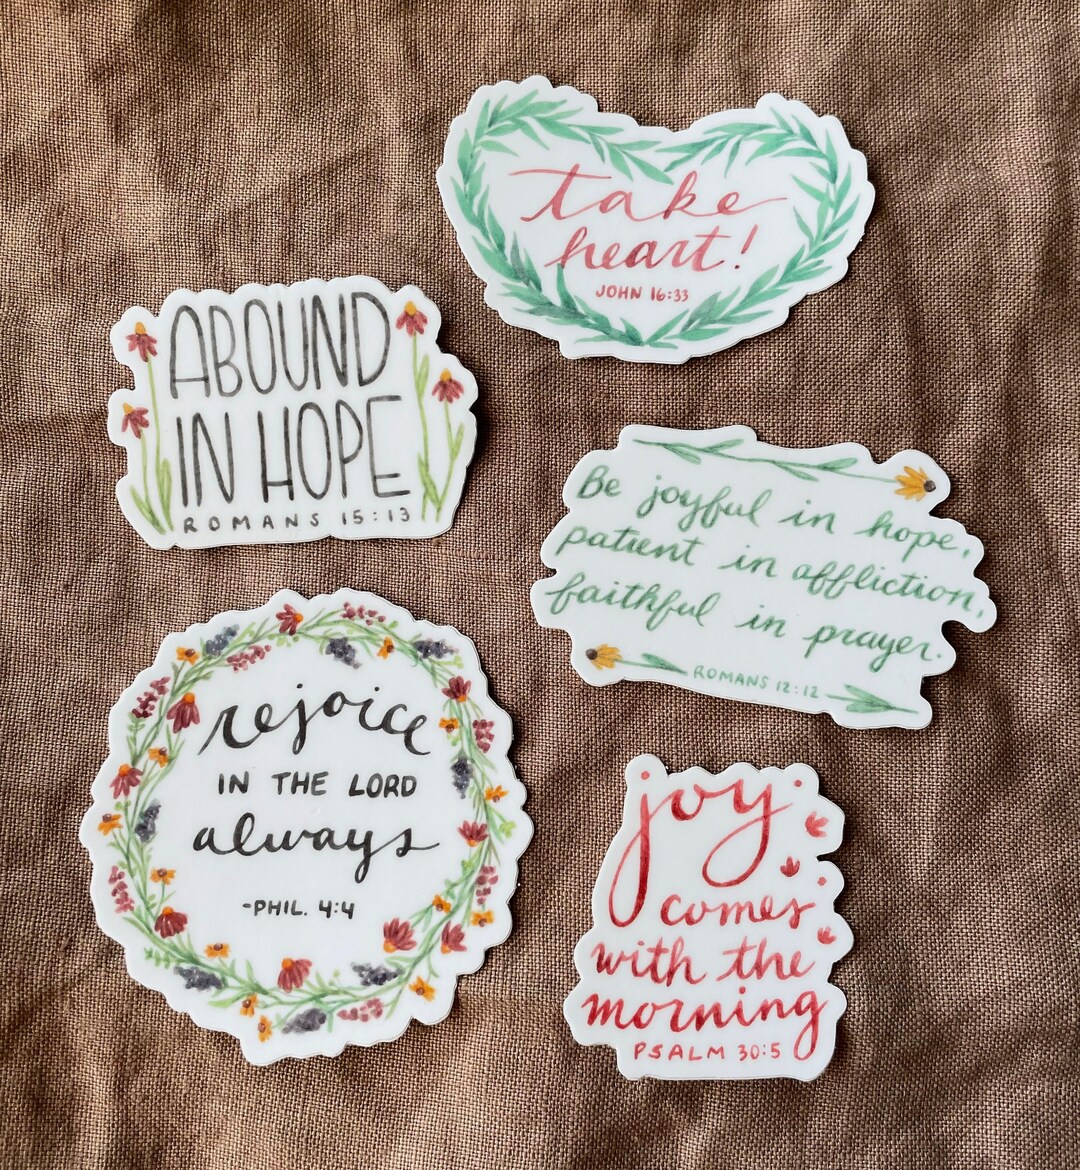 take
heart!
JOHN 16:33
ABOUND
IN HOPE
ROMANS 15:13
Be joyful in hope,
patient in affliction,
faithful in prayer.
ROMANS 12:12
rejoice
IN THE LORD
always
-PHIL. 4:4
joy
comes
with the
morning
PSALM 30:5